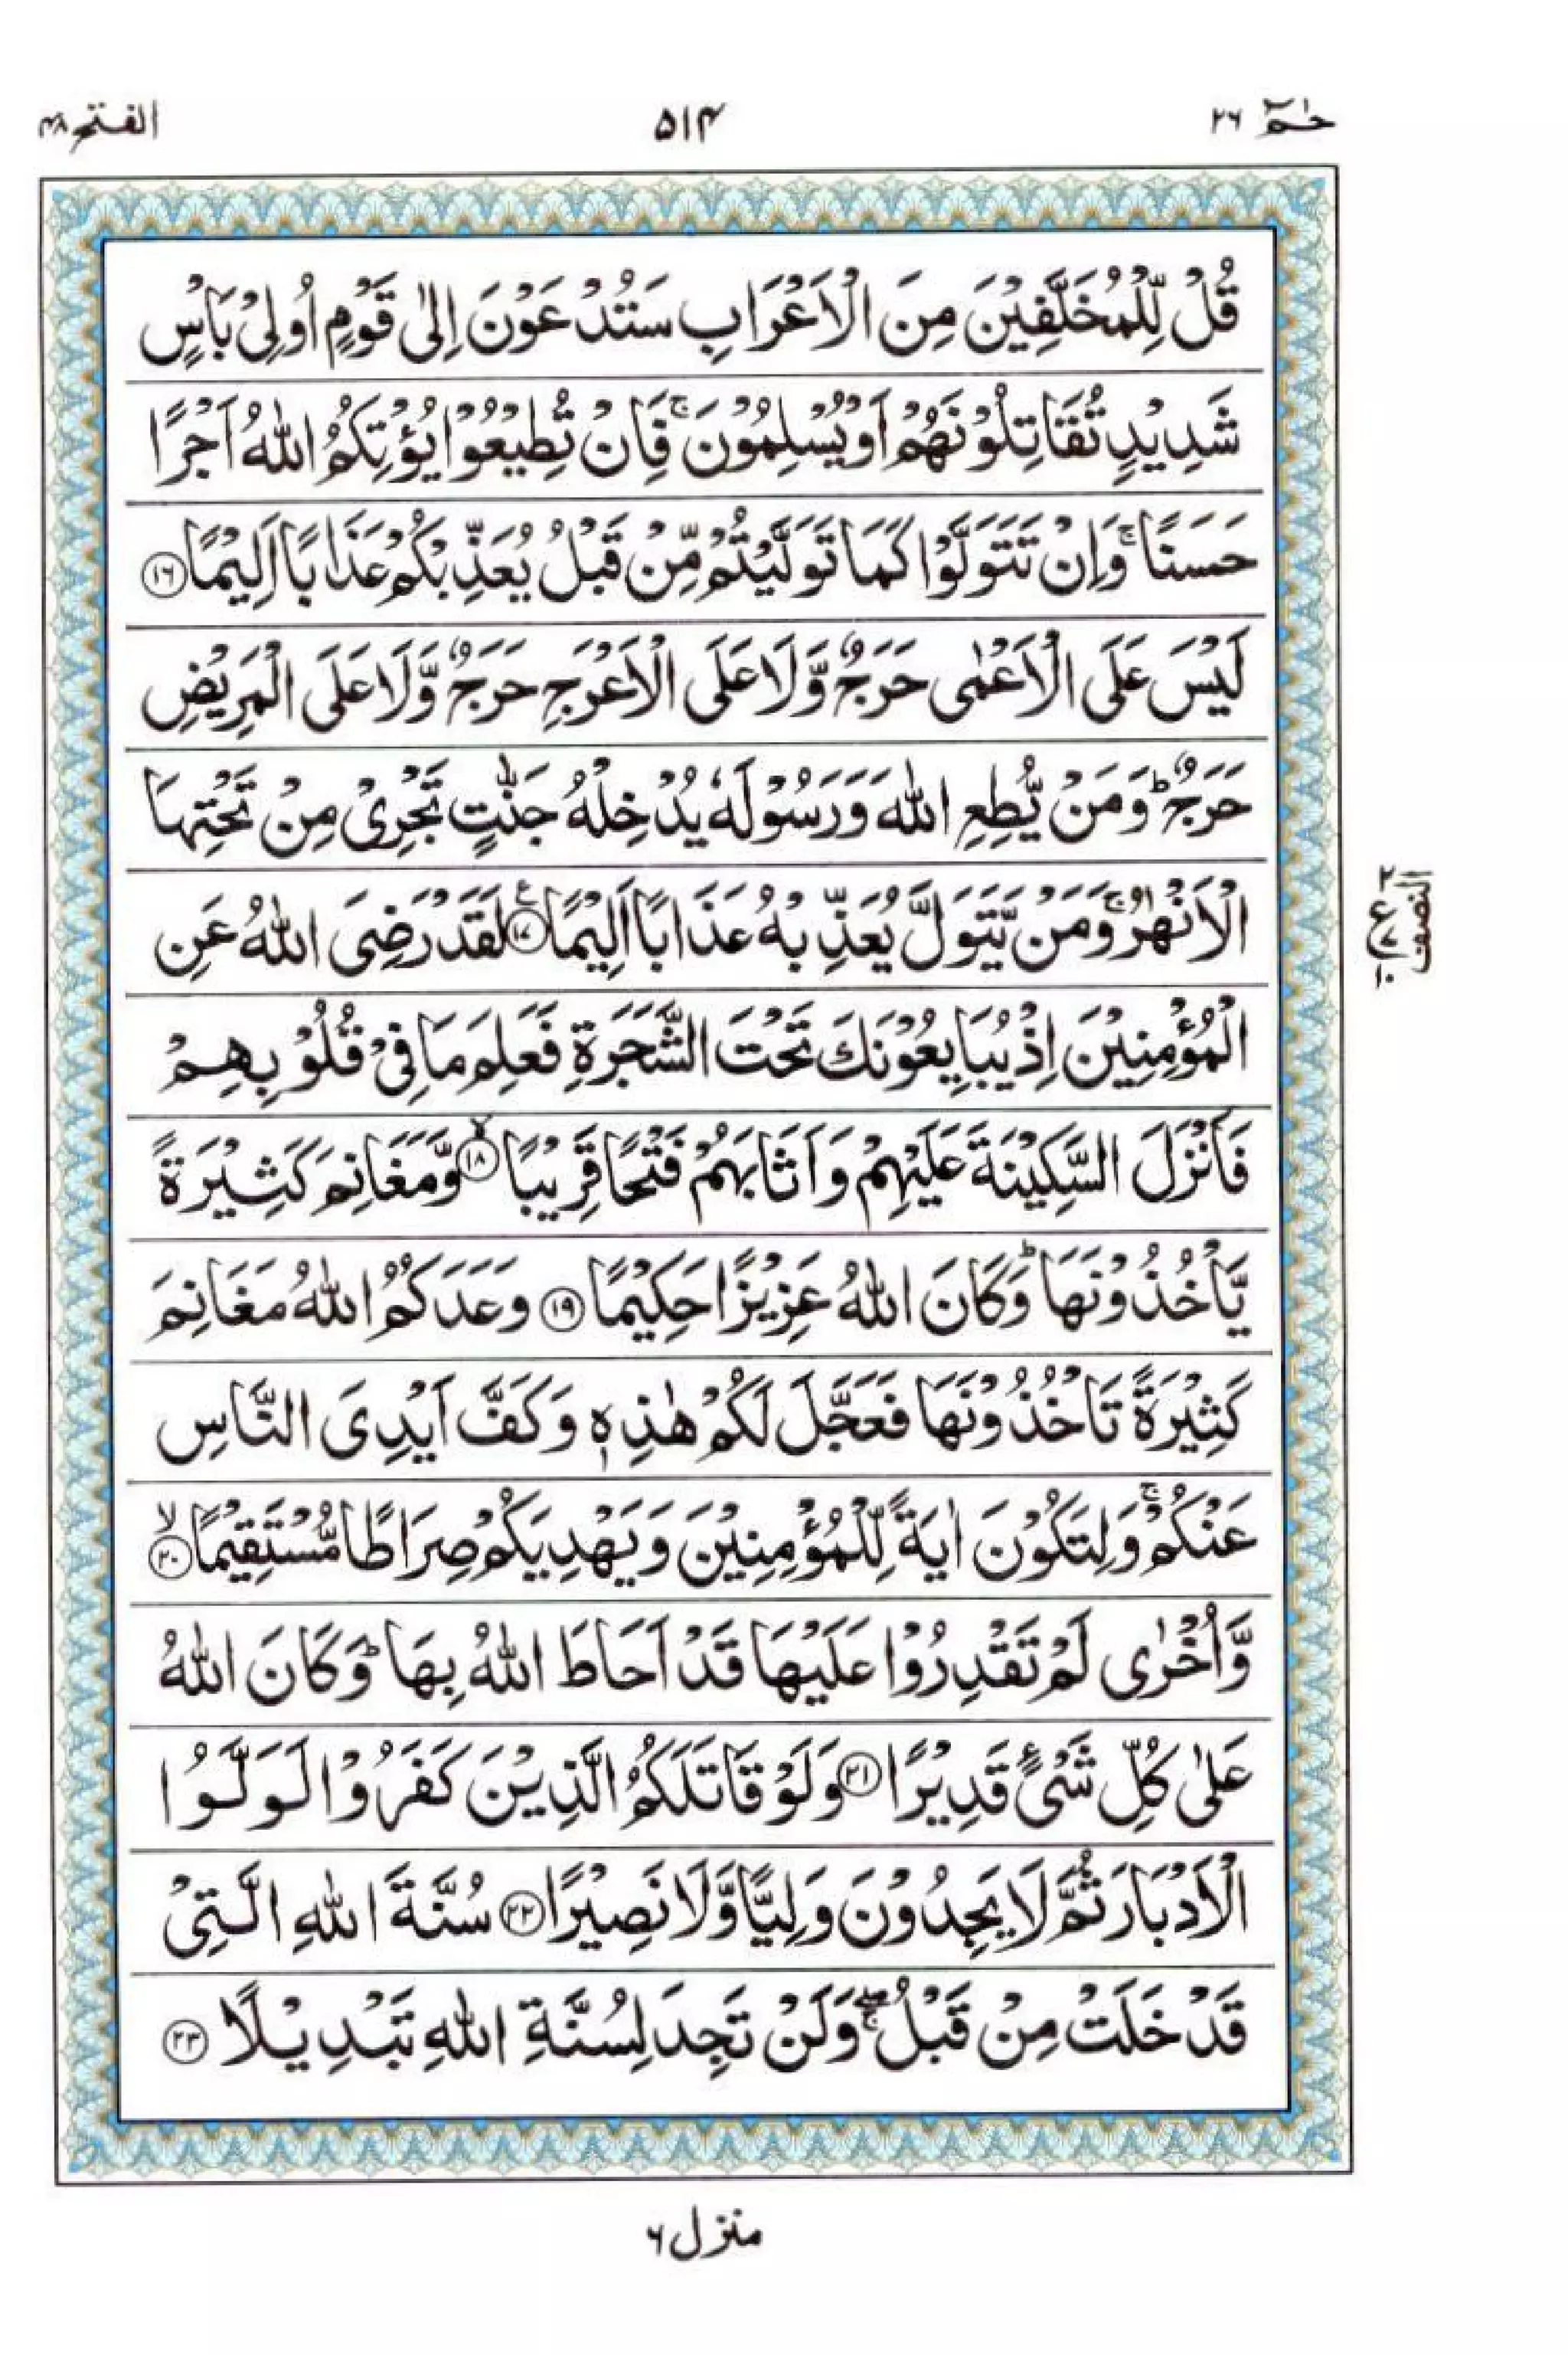 حٰمٓ ٢٦ ۵۱۴ الفتح ۴۸
قُلْ لِّلْمُخَلَّفِيْنَ مِنَ الْاَعْرَابِ سَتُدْعَوْنَ اِلٰى قَوْمٍ اُولِىْ بَاْسٍ
شَدِيْدٍ تُقَاتِلُوْنَهُمْ اَوْ يُسْلِمُوْنَ ۚ فَاِنْ تُطِيْعُوْا يُؤْتِكُمُ اللّٰهُ اَجْرًا
حَسَنًا ۚ وَاِنْ تَتَوَلَّوْا كَمَا تَوَلَّيْتُمْ مِّنْ قَبْلُ يُعَذِّبْكُمْ عَذَابًا اَلِيْمًا ۝۱۶
لَيْسَ عَلَى الْاَعْمٰى حَرَجٌ وَّلَا عَلَى الْاَعْرَجِ حَرَجٌ وَّلَا عَلَى الْمَرِيْضِ
حَرَجٌ ؕ وَمَنْ يُّطِعِ اللّٰهَ وَرَسُوْلَهٗ يُدْخِلْهُ جَنّٰتٍ تَجْرِىْ مِنْ تَحْتِهَا
الْاَنْهٰرُ ۚ وَمَنْ يَّتَوَلَّ يُعَذِّبْهُ عَذَابًا اَلِيْمًا ۝۱۷ ع لَقَدْ رَضِىَ اللّٰهُ عَنِ
النصف
ع ٢ ٧ ١٠
الْمُؤْمِنِيْنَ اِذْ يُبَايِعُوْنَكَ تَحْتَ الشَّجَرَةِ فَعَلِمَ مَا فِىْ قُلُوْبِهِمْ
فَاَنْزَلَ السَّكِيْنَةَ عَلَيْهِمْ وَاَثَابَهُمْ فَتْحًا قَرِيْبًا ۙ‏۝۱۸ وَّمَغَانِمَ كَثِيْرَةً
يَّاْخُذُوْنَهَا ؕ وَكَانَ اللّٰهُ عَزِيْزًا حَكِيْمًا ۝۱۹ وَعَدَكُمُ اللّٰهُ مَغَانِمَ
كَثِيْرَةً تَاْخُذُوْنَهَا فَعَجَّلَ لَكُمْ هٰذِهٖ وَكَفَّ اَيْدِىَ النَّاسِ
عَنْكُمْ ۚ وَلِتَكُوْنَ اٰيَةً لِّلْمُؤْمِنِيْنَ وَيَهْدِيَكُمْ صِرَاطًا مُّسْتَقِيْمًا ۙ‏۝۲۰
وَّاُخْرٰى لَمْ تَقْدِرُوْا عَلَيْهَا قَدْ اَحَاطَ اللّٰهُ بِهَا ؕ وَكَانَ اللّٰهُ
عَلٰى كُلِّ شَىْءٍ قَدِيْرًا ۝۲۱ وَلَوْ قَاتَلَكُمُ الَّذِيْنَ كَفَرُوْا لَوَلَّوُا
الْاَدْبَارَ ثُمَّ لَا يَجِدُوْنَ وَلِيًّا وَّلَا نَصِيْرًا ۝۲۲ سُنَّةَ اللّٰهِ الَّتِىْ
قَدْ خَلَتْ مِنْ قَبْلُ ۖۚ وَلَنْ تَجِدَ لِسُنَّةِ اللّٰهِ تَبْدِيْلًا ۝۲۳
منزل ۶